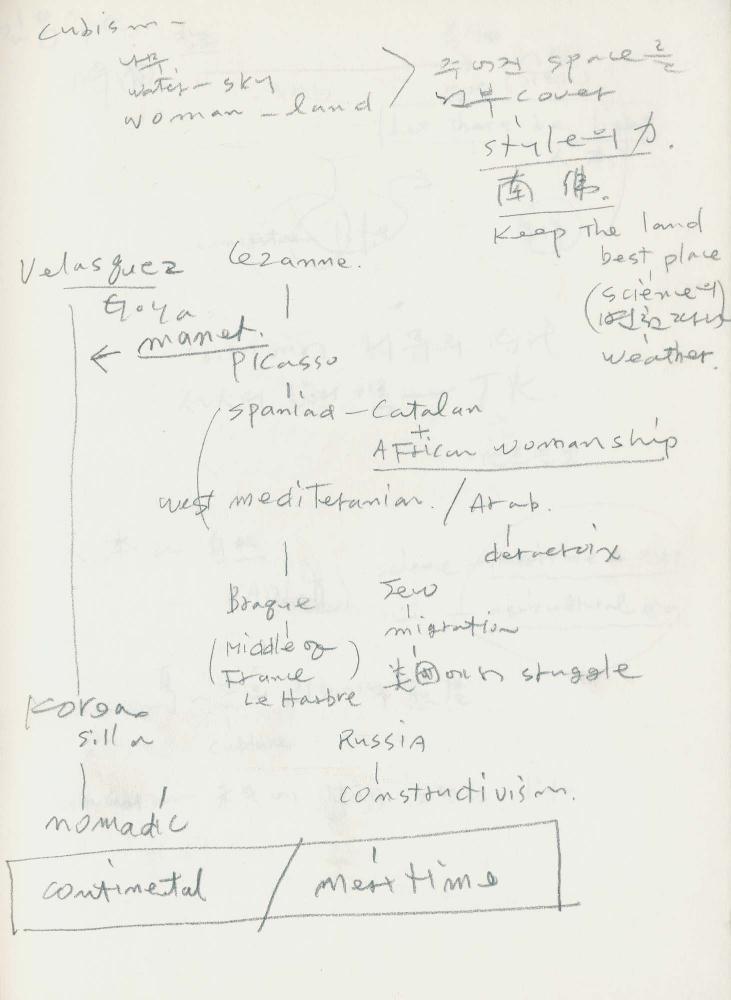 Cubism -
나무
water - sky
woman - land
주어진 space를
전부 cover
style의 力.
南 佛.
Keep The land
best place
(science의
weather.
Velasquez
Goya
manet.
←
Cezanne.
PICasso
spaniad - Catalan
+
AFrican womanship
west mediteranian. / Arab.
delacroix
Braque
(Middle of
France)
Le Harbre
Jew
migration
美国 own stuggle
Korea
silla
nomadic
RussIA
constructivism.
continental / meritime